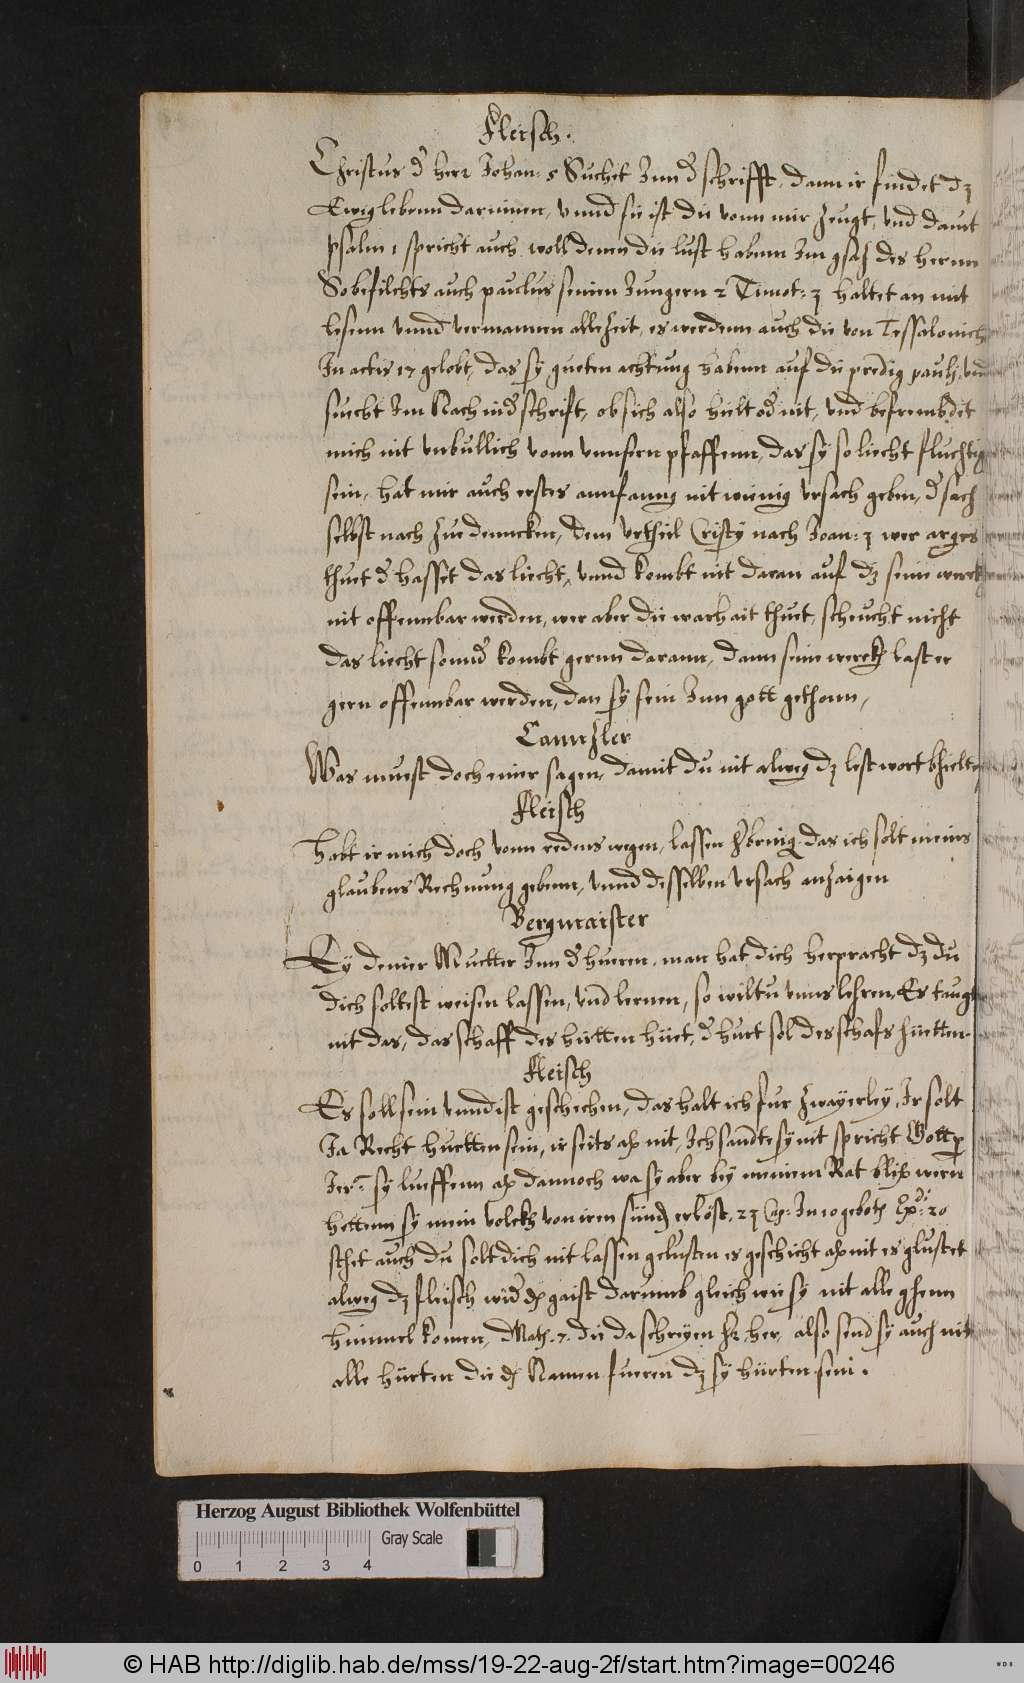 Fleisch.
Christus d̕ herr Johan: 5 Suchet Inn d̕ schrifft, dann ir findet dz
Ewig lebenn darinnen, vnnd sie ist die vonn mir zeugt, vnd dauit
psalm 1 spricht auch woll denen die lust habenn Im gsaz des herrnn
So befilchts auch paulus seinen Jungern 2 Timot: 3 haltet an mit
lesenn vnnd vermannen alle Zeit, es werdenn auch die von Tessalonich
In actis 17 gelobt, das sy gueten achtung habenn auf die predig pauli, vnd
suecht Im Nach in d̕ schrift, ob sich also hielt od̕ nit, vnd befrembdet
mich nit vnbillich vonn vnnsern pfaffenn, das sy so liecht fluchtig
sein, hat mir auch erstes annfanng nit wenig vrsach geben, d̕ sach
selbst nach zue denncken, dem vrtheil Cristy nach Joan: 3 wer arges
thuet d̕ hasset das liecht, vnnd kombt nit daran auf dz seine werckh
nit offennbar werden, wer aber die warhait thuet, scheucht nicht
das liecht sonnd̕ kombt gernn darann, dann seine werckh last er
gern offennbar werden, dan sy sein Inn gott gethonn,
Cannzler
Was muest doch einer sagen, damit du nit alweg dz lest wort bhielts
Fleisch
Habt ir mich doch vonn redens wegen, lassen das ich solt meins
glaubens Rechnung gebenn, vnnd desselben vrsach anzaigen
Bergmaister
Ey deiner Muetter Inn d̕ hueren, man hat dich herpracht dz du
dich soltest weisen lassen, vnd lernen, so wiltu vnns lehren, Es taugt
nit das, das schaff des hirtten hüet, d̕ hirt sol des schafs hüetten.
Fleisch
Es soll sein vnnd ist geschechen, das halt ich fur zwayerley, Ir solt
Ja Recht huetten sein, ir seits aber nit, Ich sandte sy nit spricht Gott
Jer: sy lueffenn dannoch wa sy aber bey meinem Rat wern
hettenn sy mein volckh von iren sünd erlöst, 23 Cap: In 10 geboth 20
sthet auch du solt dich nit lassen gelusten es geschicht nit es glustet
alweg dz fleisch wid̕ gaist darumb gleich wie sy nit alle gehenn
himmel komen, Math. 7. die da schreyen hr her, also send sy auch nit
alle hirten die den Namen fueren dz sy hirten sein.
Herzog August Bibliothek Wolfenbüttel
Gray Scale
0 1 2 3 4
© HAB http://diglib.hab.de/mss/19-22-aug-2f/start.htm?image=00246